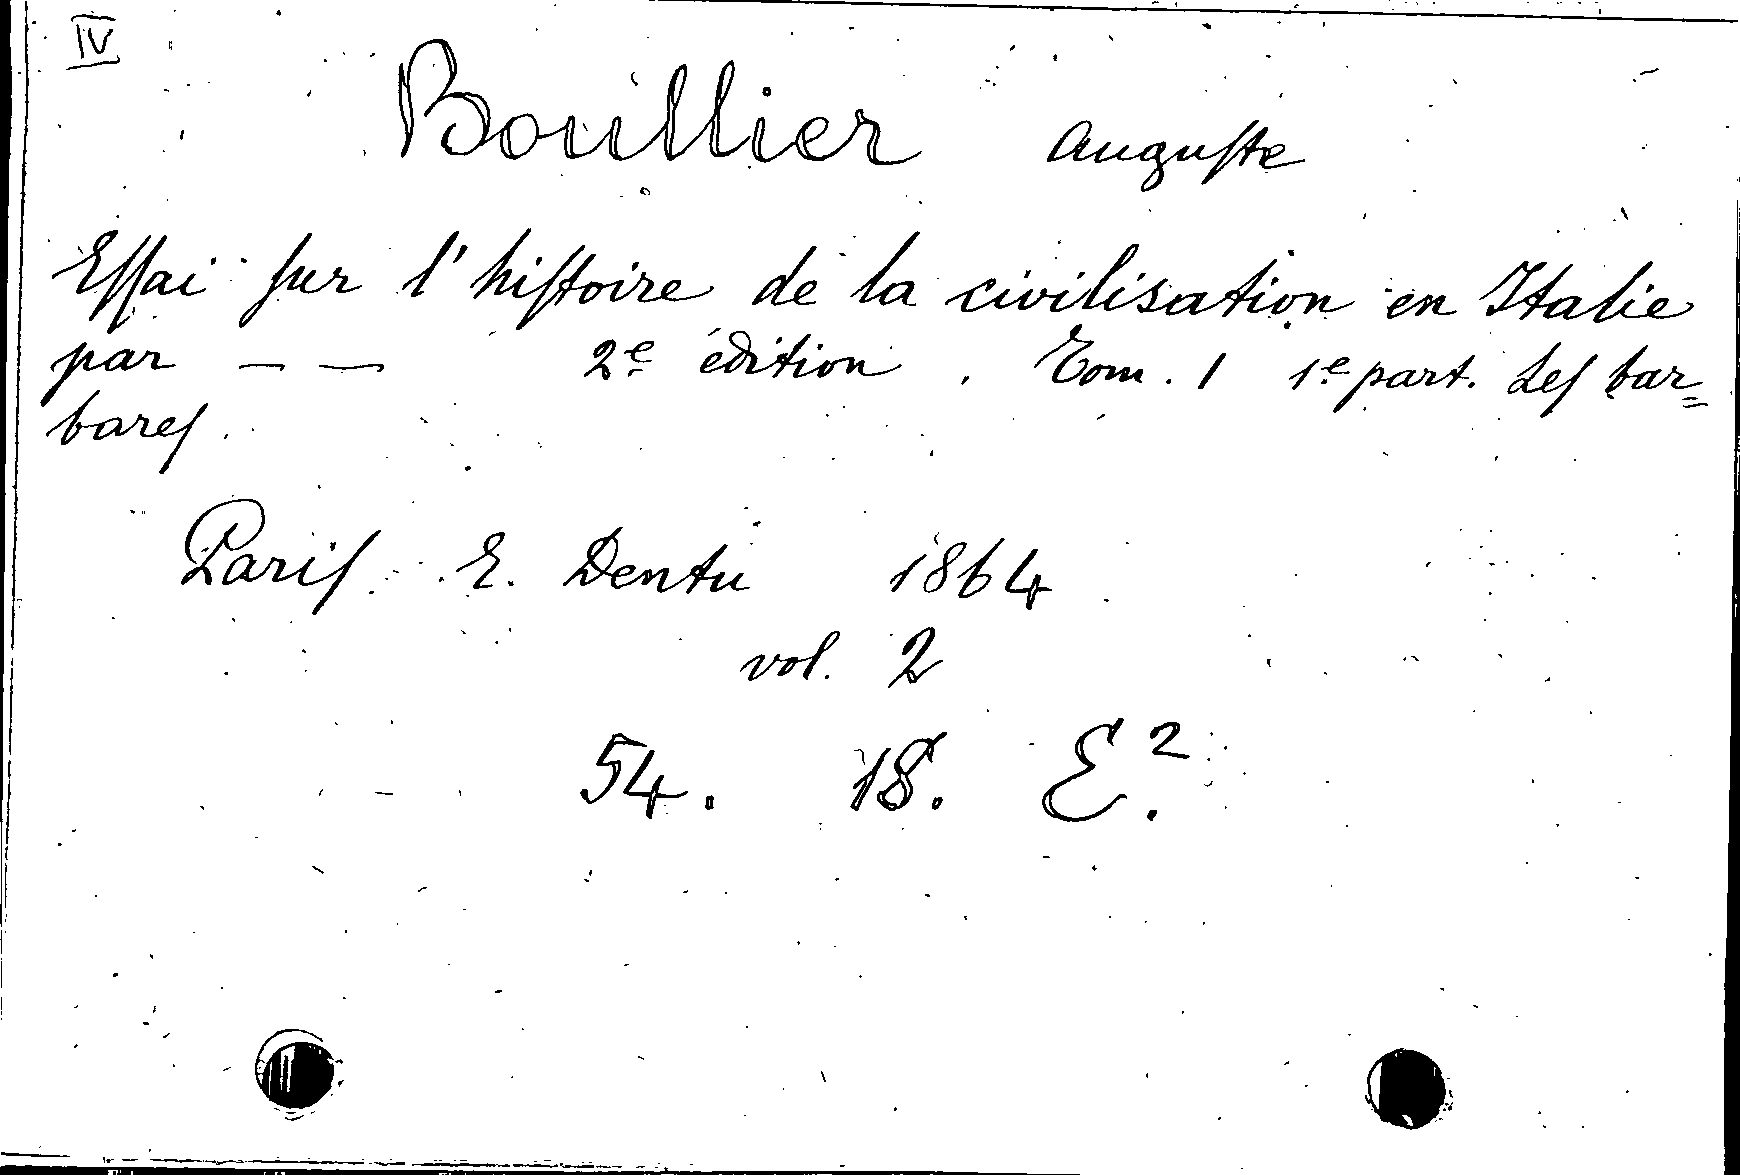 IV
Bouillier Auguste
Essai sur l'histoire de la civilisation en Italie
par — — 2e édition. Tom. 1 1e part. Les bar=
bares.
Paris. E. Dentu 1864
vol. 2
54. 18. E2.